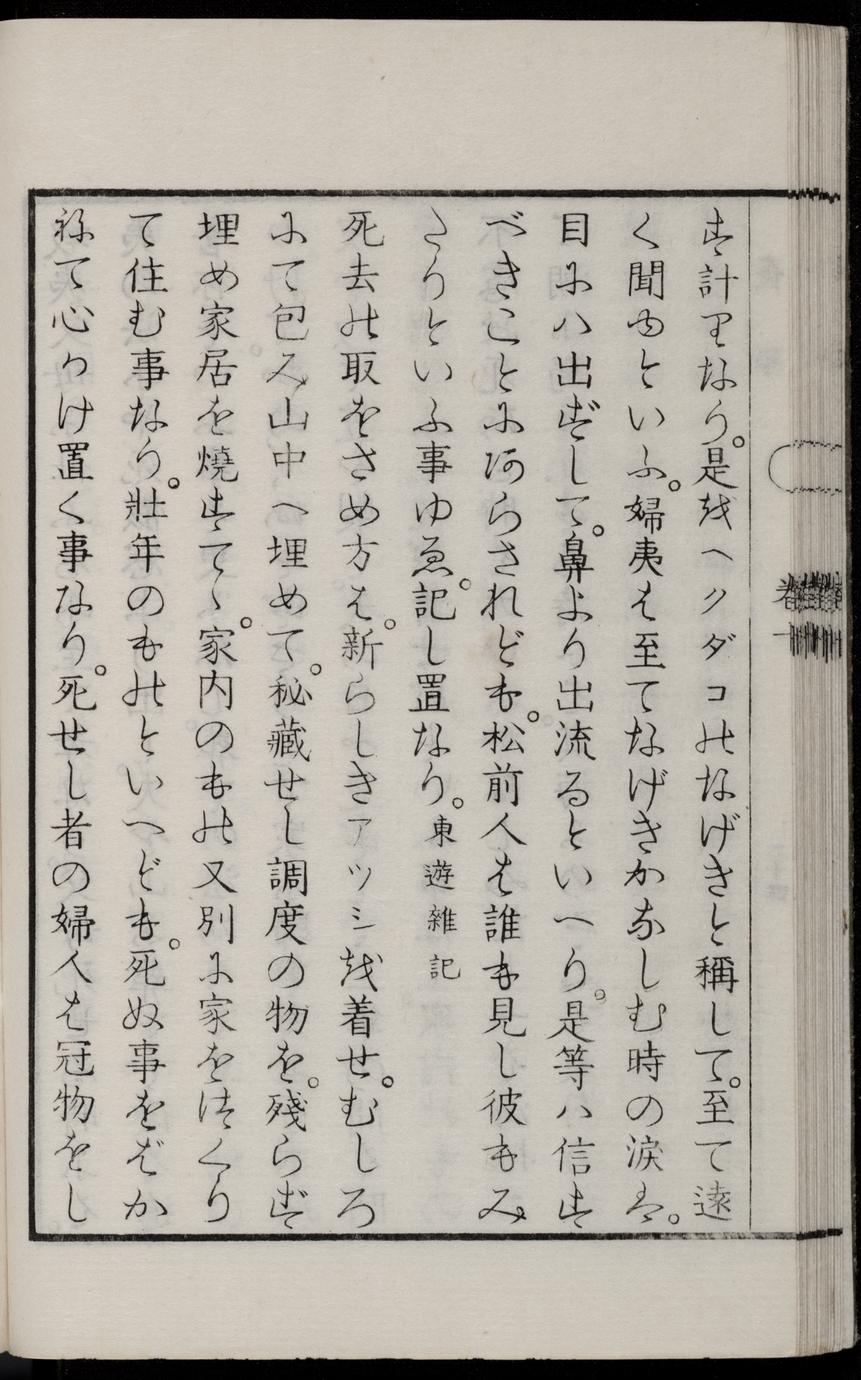 す計りなり。是をヘクダコのなげきと稱して。至て遠
く聞ゆといふ。婦夷は至てなげきかなしむ時の淚は。
目にハ出ずして。鼻より出流るといへり。是等ハ信ず
べきことにあらされども。松前人は誰も見し彼もみ
たりといふ事ゆゑ。記し置なり。東遊雜記
死去の取をさめ方は。新らしきアツシを着せ。むしろ
にて包み山中へ埋めて。秘藏せし調度の物を。殘らず
埋め家居を燒すてゝ。家内のもの又別に家をつくり
て住む事なり。壯年のものといへども。死ぬ事をばか
ねて心りけ置く事なり。死せし者の婦人は冠物をし